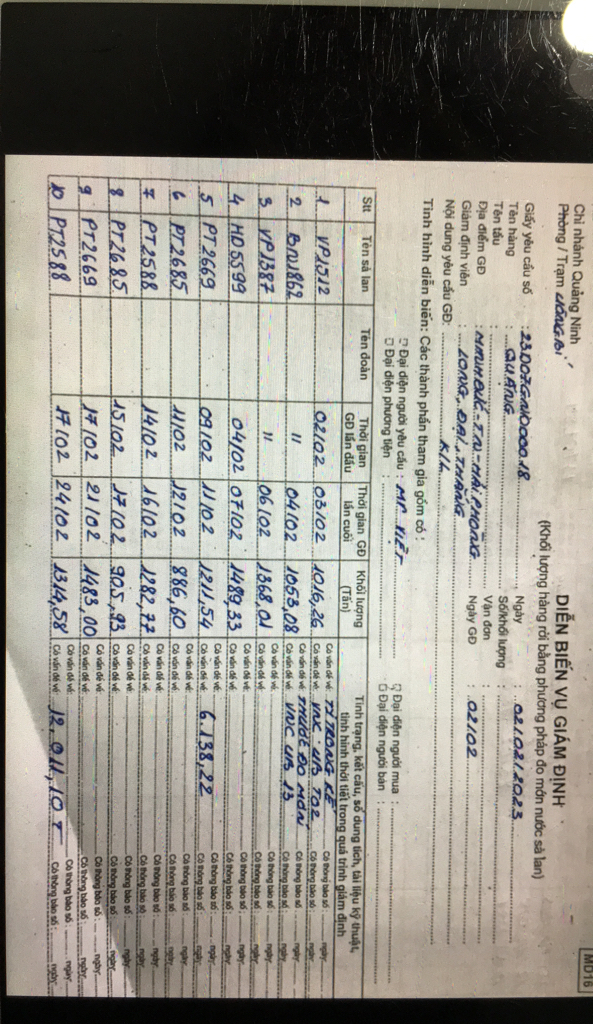 MD16
Chi nhánh Quảng Ninh
Phòng / Trạm UÔNG BÍ
DIỄN BIẾN VỤ GIÁM ĐỊNH
(Khối lượng hàng rời bằng phương pháp đo mớn nước sà lan)
Giấy yêu cầu số : 23D07GN0000.18 Ngày : 02/02/2023
Tên hàng : QUẶNG Số/khối lượng :
Tên tầu : Vận đơn :
Địa điểm GĐ : MINH ĐỨC - TN - HẢI PHÒNG Ngày GĐ : 02/02
Giám định viên : LONG, ĐẠI, THẮNG
Nội dung yêu cầu GĐ: K/L
Tình hình diễn biến: Các thành phần tham gia gồm có :
□ Đại diện người yêu cầu : MR VIỆT □ Đại diện người mua :
□ Đại diện phương tiện : □ Đại diện người bán :
Stt Tên sà lan Tên đoàn Thời gian GĐ lần đầu Thời gian GĐ lần cuối Khối lượng (Tấn) Tình trạng, kết cấu, số dung tích, tài liệu kỹ thuật, tình hình thời tiết trong quá trình giám định
1 VP1512 02/02 03/02 1016,26 Có vấn đề về: TỈ TRỌNG KẾ Có thông báo số: ngày:
Có vấn đề về: VNC - UB T02 Có thông báo số: ngày:
2 BN1862 " 04/02 1053,08 Có vấn đề về: THƯỚC ĐO MỚN Có thông báo số: ngày:
Có vấn đề về: VNC UB 13 Có thông báo số: ngày:
3 VP1387 " 06/02 1368,01 Có vấn đề về: Có thông báo số: ngày:
4 HD5599 04/02 07/02 1489,33 Có vấn đề về: Có thông báo số: ngày:
5 PT2669 09/02 11/02 1211,54 Có vấn đề về: 6.138,22 Có thông báo số: ngày:
6 PT2685 11/02 12/02 886,60 Có vấn đề về: Có thông báo số: ngày:
7 PT2588 14/02 16/02 1282,77 Có vấn đề về: Có thông báo số: ngày:
8 PT2685 15/02 17/02 905,93 Có vấn đề về: Có thông báo số: ngày:
9 PT2669 17/02 21/02 1483,00 Có vấn đề về: Có thông báo số: ngày:
10 PT2588 17/02 24/02 1314,58 Có vấn đề về: 12.011,10 T Có thông báo số: ngày: